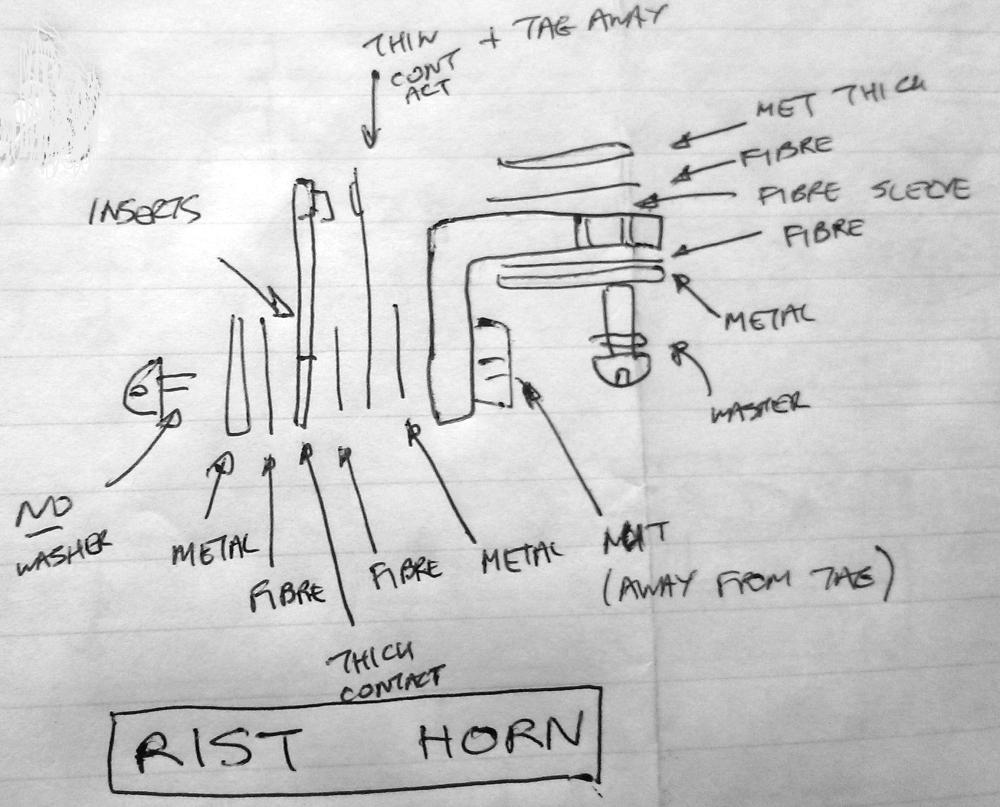 THIN + TAG AWAY
CONT
ACT
MET THICK
FIBRE
FIBRE SLEEVE
FIBRE
INSERTS
METAL
WASHER
NO
WASHER
METAL
FIBRE
FIBRE
METAL
NUT
(AWAY FROM TAG)
THICK
CONTACT
RIST HORN